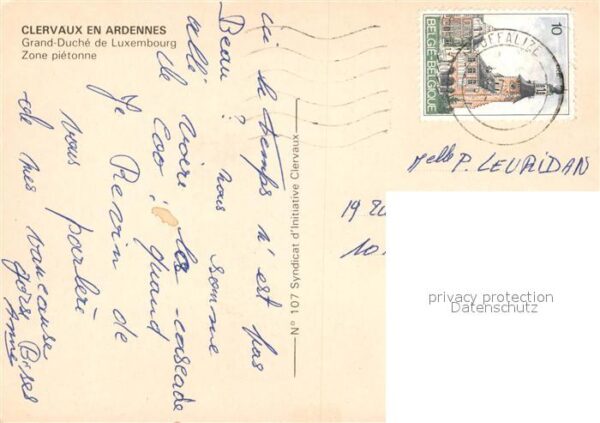 CLERVAUX EN ARDENNES
Grand-Duché de Luxembourg
Zone piétonne
ici le temps n'est pas
Beau ? nous somme
allé voire les cascade
de coo. quand
Je Revin de
vous parlerè
de mes vancause
gors Bises
Anne
N° 107 Syndicat d'Initiative Clervaux
BELGIE-BELGIQUE
10
HOUFFALIZE
Melle P. LEURIDAN
19 20
10.
privacy protection
Datenschutz